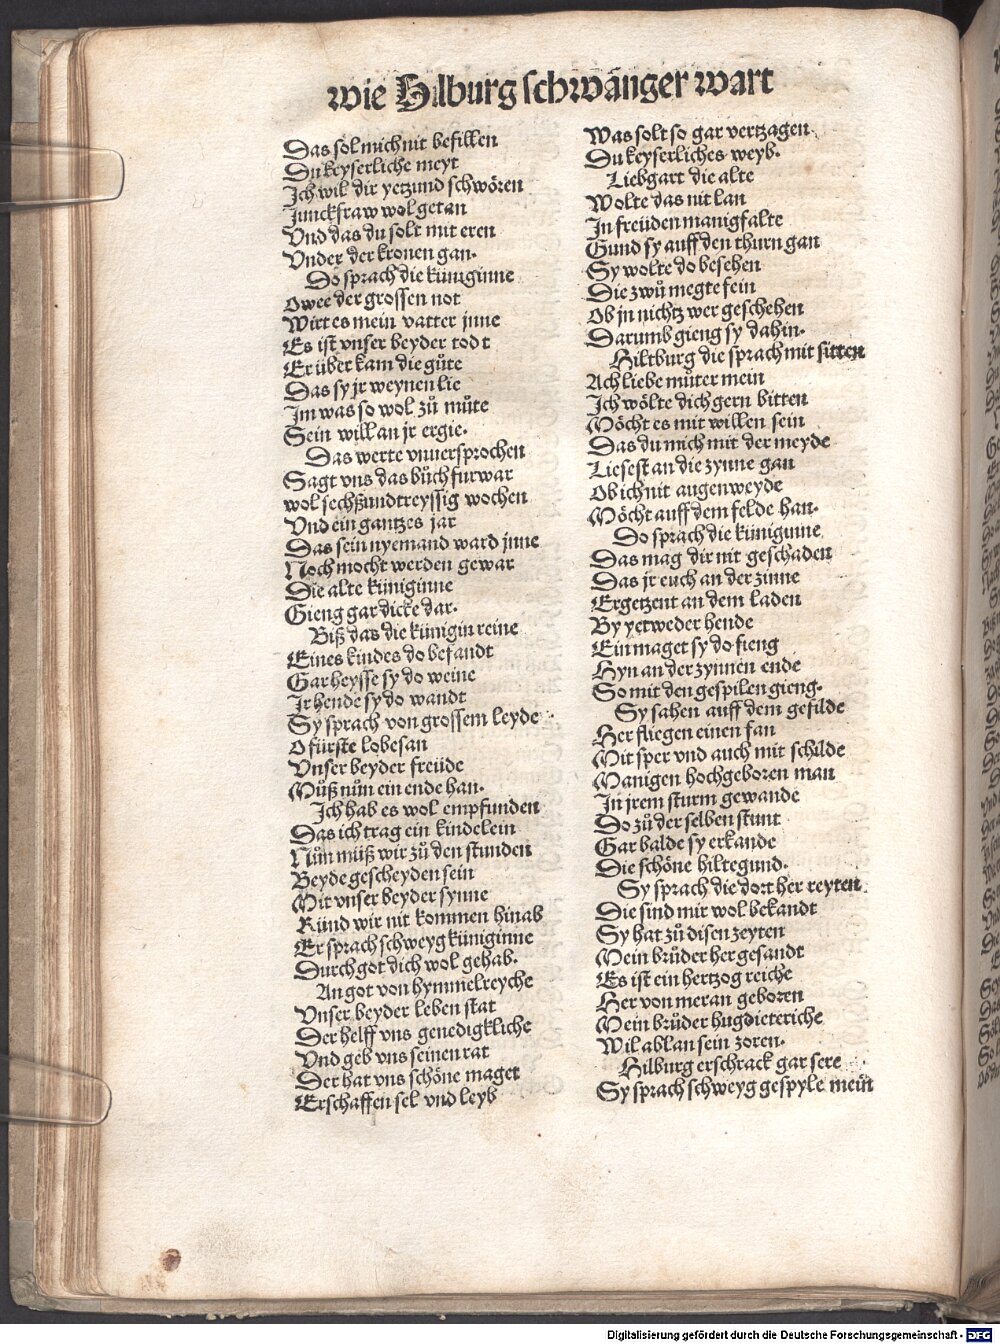 wie Hilburg schwanger wart
Das sol mich nit befillen
Du keyserliche meyt
Ich wil dir yetzund schwören
Junckfraw wol getan
Vnd das du solt mit eren
Vnder der kronen gan.
Do sprach die küniginne
Owee der grossen not
Wirt es mein vatter jnne
Es ist vnser beyder todt
Er über kam die gůte
Das sy jr weynen lie
Im was so wol zů můte
Sein will an jr ergie.
Das werte vnuersprochen
Sagt vns das bůch furwar
wol sechßundtreyssig wochen
Vnd ein gantzes jar
Das sein nyemand ward jnne
Noch mocht werden gewar
Die alte küniginne
Gieng gar dicke dar.
Biß das die künigin reine
Eines kindes do befandt
Gar heysse sy do weine
Ir hende sy do wandt
Sy sprach von grossem leyde
O fürste lobesan
Vnser beyder freüde
Můß nům ein ende han.
Ich hab es wol empfunden
Das ich trag ein kindelein
Nům můß wir zů den stunden
Beyde gescheyden sein
Mit vnser beyder synne
Künd wir nit kommen hinab
Er sprach schweyg küniginne
Durch got dich wol gehab.
An got von hymmelreyche
Vnser beyder leben stat
Der helff vns genedigkliche
Vnd geb vns seinen rat
Der hat vns schöne maget
Erschaffen sel vnd leyb
Was solt so gar vertzagen
Du keyserliches weyb.
Liebgart die alte
Wolte das nit lan
In freüden manigfalte
Gund sy auff den thurn gan
Sy wolte do besehen
Die zwů megte fein
Ob jn nichtz wer geschehen
Darumb gieng sy dahin.
Hiltburg die sprach mit sitten
Ach liebe můter mein
Ich wölte dich gern bitten
Möcht es mit willen sein
Das du mich mit der meyde
Liesest an die zynne gan
Ob ich nit augenweyde
Möcht auff dem felde han.
Do sprach die küniginne
Das mag dir nit geschaden
Das jr euch an der zinne
Ergetzent an dem laden
By yetweder hende
Ein maget sy do fieng
Hyn an der zynnen ende
So mit den gespilen gieng.
Sy sahen auff dem gefilde
Her fliegen einen fan
Mit sper vnd auch mit schilde
Manigen hochgeboren man
In jrem sturm gewande
Do zů der selben stunt
Gar balde sy erkande
Die schöne hiltegund.
Sy sprach die dort her reyten
Die sind mir wol bekandt
Sy hat zů disen zeyten
Mein brůder her gesandt
Es ist ein hertzog reiche
Her von meran geboren
Mein brůder hugdieteriche
Wil ablan sein zoren.
Hilburg erschrack gar sere
Sy sprach schweyg gespyle mein
Digitalisierung gefördert durch die Deutsche Forschungsgemeinschaft - DFG